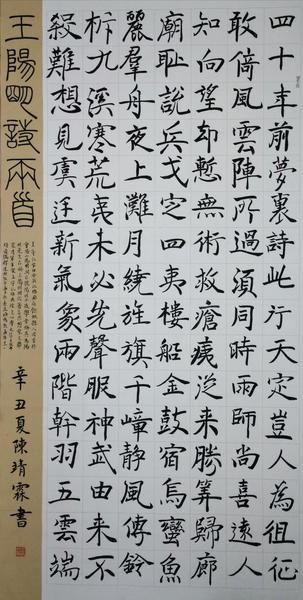 四十年前夢裏詩此行天定豈人為徂征
敢倚風雲陣所過須同時雨師尚喜遠人
知向望却慙無術救瘡痍從来勝筭歸廊
廟恥說兵戈定四夷樓船金鼓宿烏蠻魚
麗羣舟夜上灘月繞旌旗千嶂靜風傳鈴
柝九溪寒荒夷未必先聲服神武由来不
殺難想見虞廷新氣象兩階幹羽五雲端
王陽明詩兩首
辛丑夏陳霖書